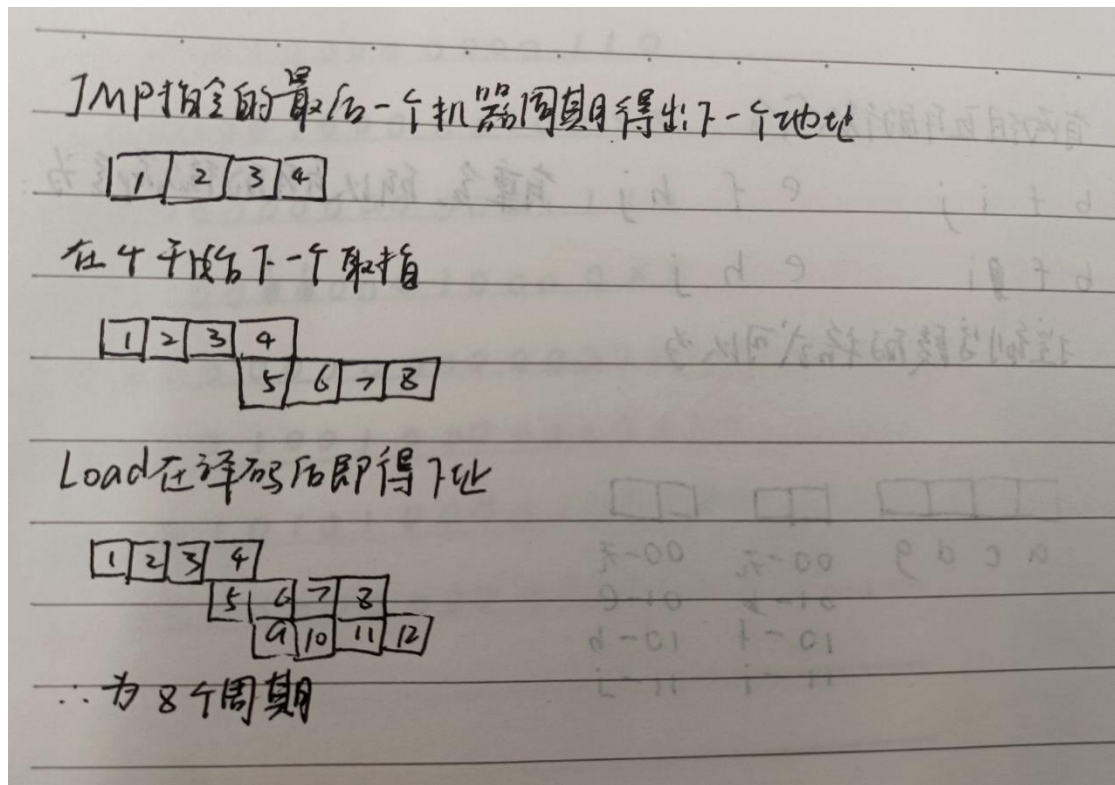 JMP指令的最后一个机器周期得出下一个地址
1 2 3 4
在4开始下一个取指
1 2 3 4
5 6 7 8
Load在译码后即得下址
1 2 3 4
5 6 7 8
9 10 11 12
∴为8个周期